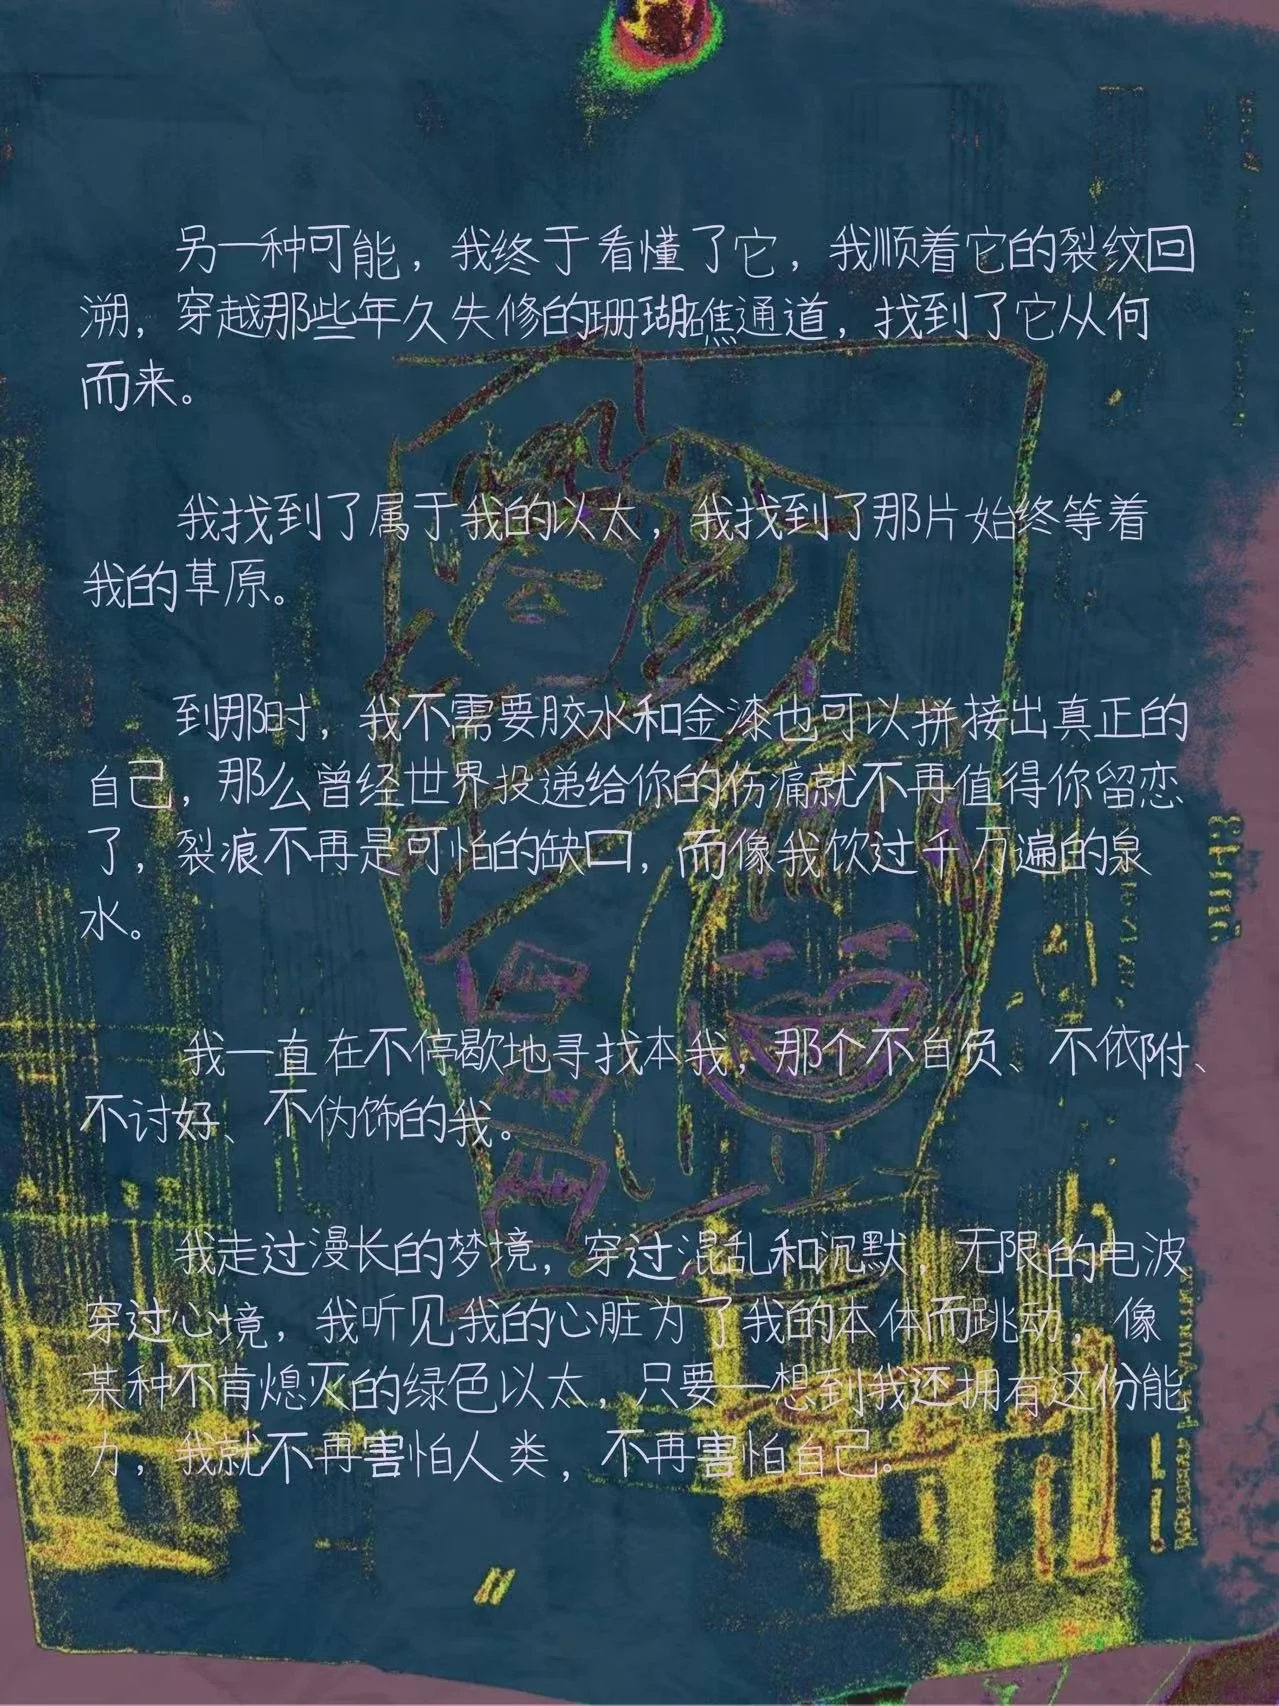 另一种可能，我终于看懂了它，我顺着它的裂纹回
溯，穿越那些年久失修的珊瑚礁通道，找到了它从何
而来。
我找到了属于我的以太，我找到了那片始终等着
我的草原。
到那时，我不需要胶水和金漆也可以拼接出真正的
自己，那么曾经世界投递给你的伤痛就不再值得你留恋
了，裂痕不再是可怕的缺口，而像我饮过千万遍的泉
水。
我一直在不停歇地寻找本我，那个不自负、不依附、
不讨好、不伪饰的我。
我走过漫长的梦境，穿过混乱和沉默，无限的电波
穿过心境，我听见我的心脏为了我的本体而跳动，像
某种不肯熄灭的绿色以太，只要一想到我还拥有这份能
力，我就不再害怕人类，不再害怕自己。